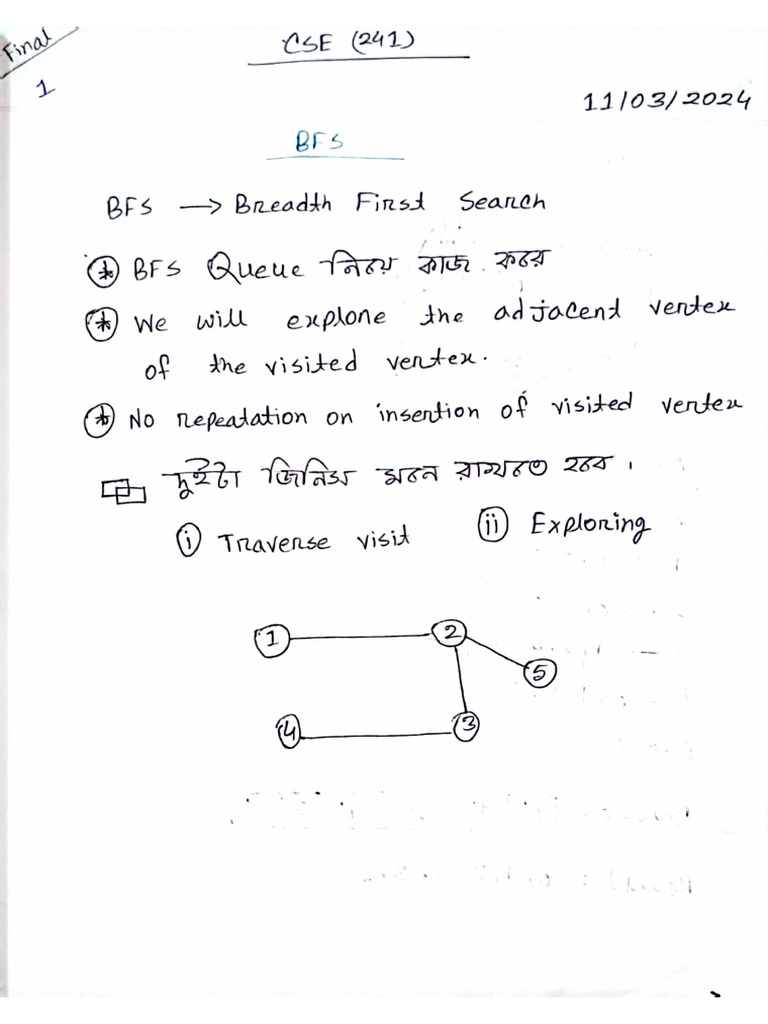 Final
CSE (241)
1
11/03/2024
BFS
BFS → Breadth First Search
* BFS Queue নিয়ে কাজ করে
* We will explore the adjacent vertex
of the visited vertex.
* No repeatation or insertion of visited vertex
দুইটা জিনিস মনে রাখতে হবে।
i Traverse visit ii Exploring
1 2
5
4 3